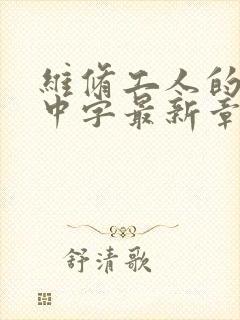 維脩工人的
中字最新章
舒清歌